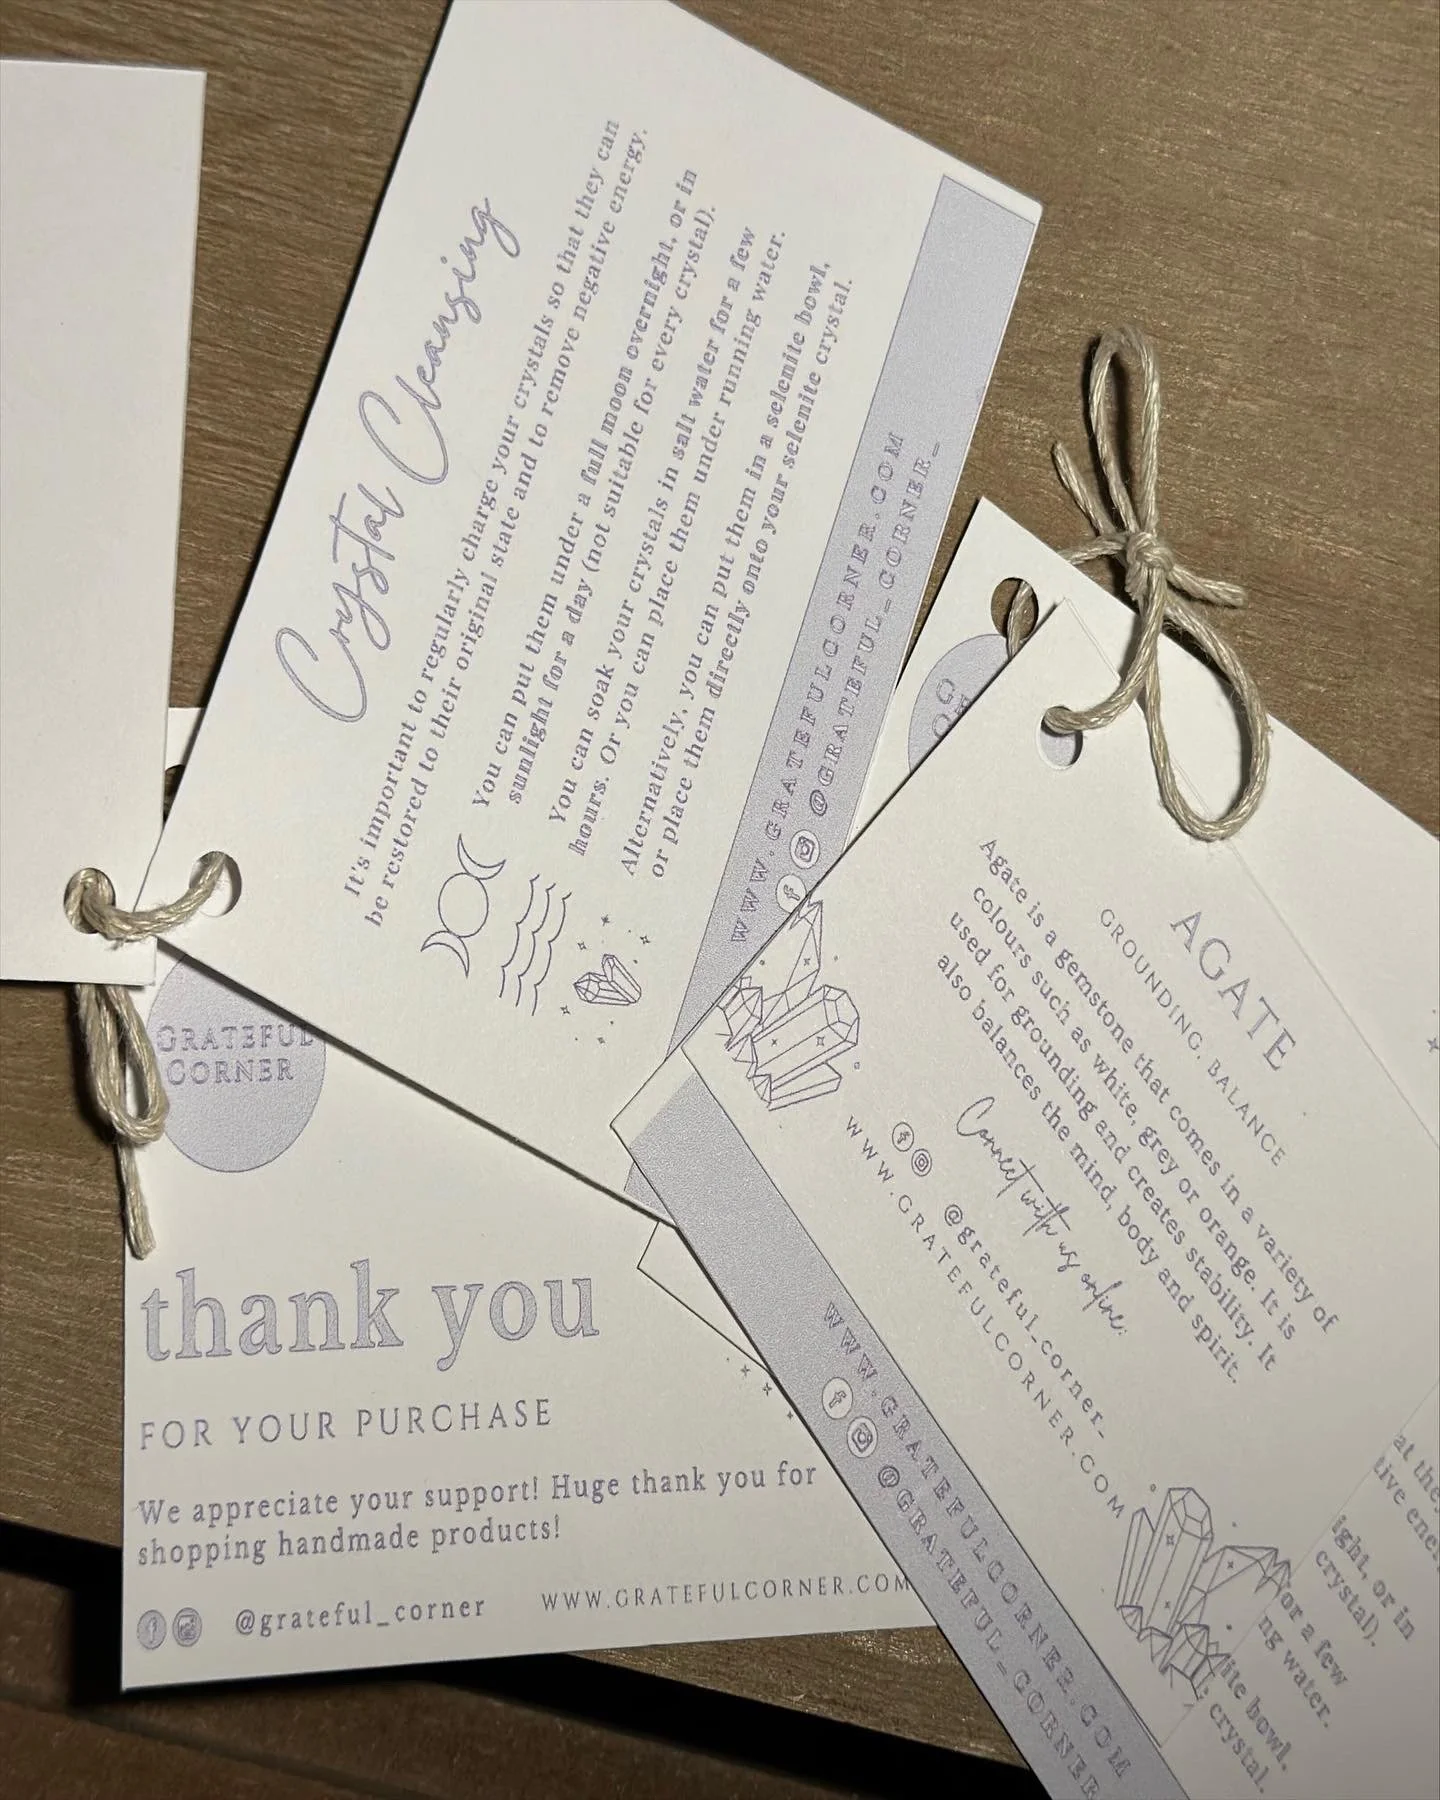 Crystal Cleansing
It's important to regularly charge your crystals so that they can
be restored to their original state and to remove negative energy.
You can put them under a full moon overnight, or in
sunlight for a day (not suitable for every crystal).
You can soak your crystals in salt water for a few
hours. Or you can place them under running water.
Alternatively, you can put them in a selenite bowl,
or place them directly onto your selenite crystal.
WWW.GRATEFULCORNER.COM
@GRATEFUL_CORNER_
GRATEFUL
CORNER
thank you
FOR YOUR PURCHASE
We appreciate your support! Huge thank you for
shopping handmade products!
@grateful_corner
WWW.GRATEFULCORNER.COM
AGATE
GROUNDING, BALANCE
Agate is a gemstone that comes in a variety of
colours such as white, grey or orange. It is
used for grounding and creates stability. It
also balances the mind, body and spirit.
Connect with us online:
@grateful_corner_
WWW.GRATEFULCORNER.COM
WWW.GRATEFULCORNER.COM
@GRATEFUL_CORNER
at they
tive ener
ight, or in
crystal).
for a few
ng water.
ite bowl,
crystal.